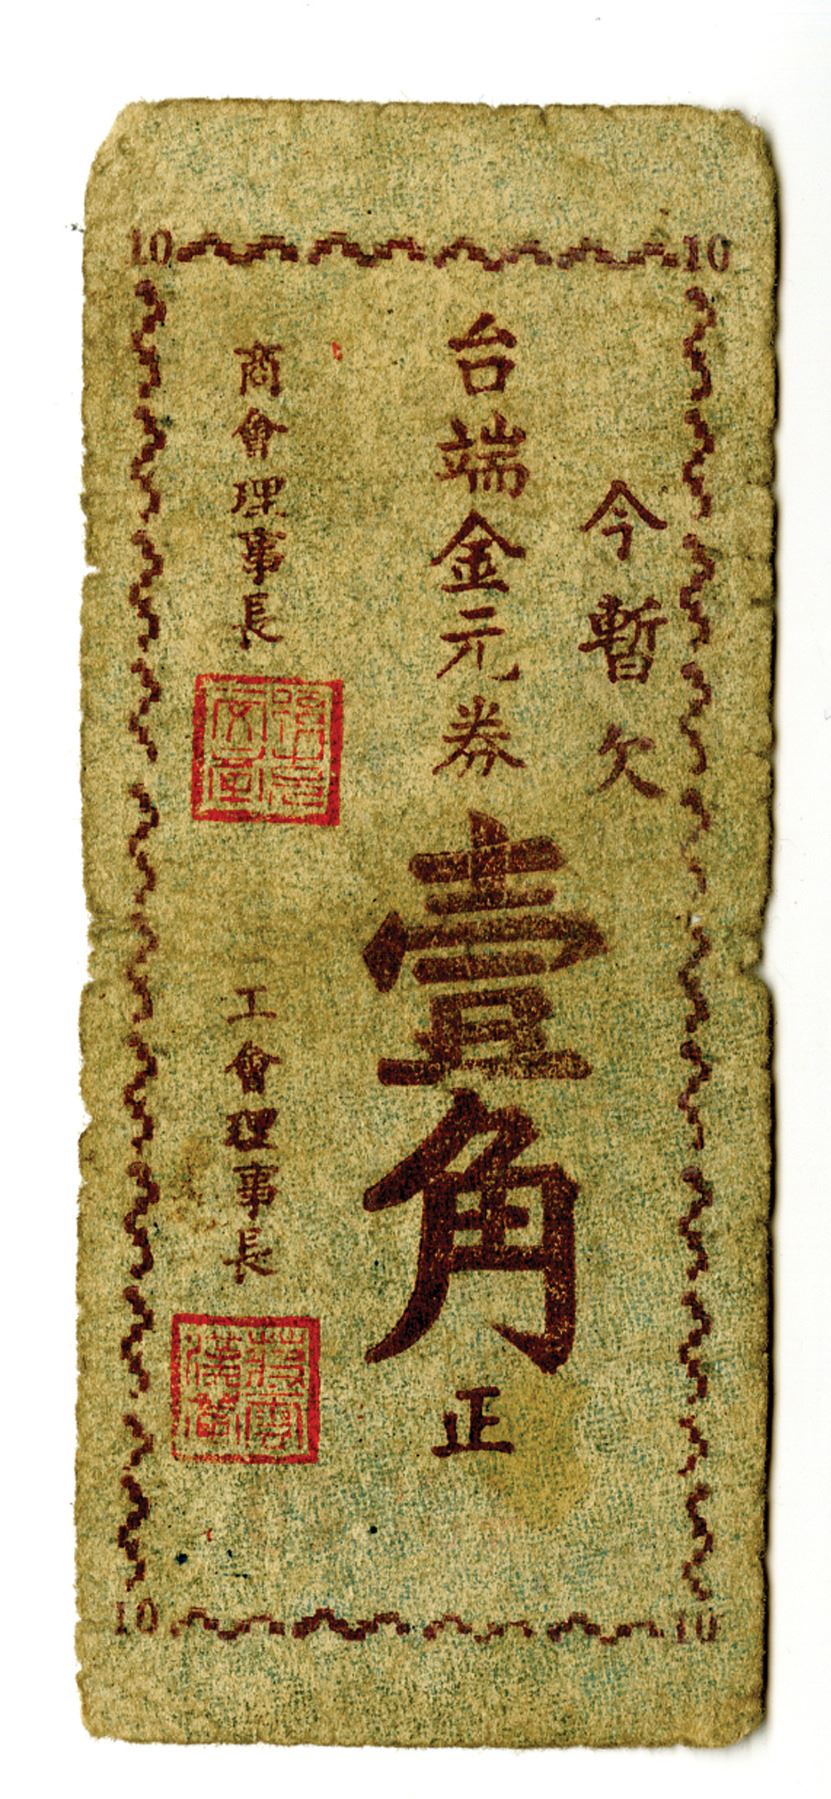 10
10
今暫欠
台端金元券壹角正
商會理事長
工會理事長
10
10